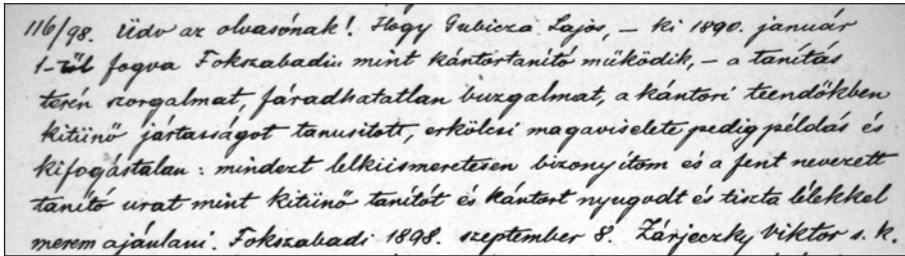 116/98. Üdv az olvasónak! Hogy Gubicza Lajos, – ki 1890. január
1-től fogva Fokszabadin mint kántortanító működik, – a tanítás
terén szorgalmat, fáradhatatlan buzgalmat, a kántori teendőkben
kitünő jártasságot tanusitott, erkölcsi magaviselete pedig példás és
kifogástalan: mindezt lelkiismeretesen bizonyítom és a fent nevezett
tanító urat mint kitünő tanítót és kántort nyugodt és tiszta lélekkel
merem ajánlani. Fokszabadi 1898. szeptember 8. Zárjeczky Viktor s. k.